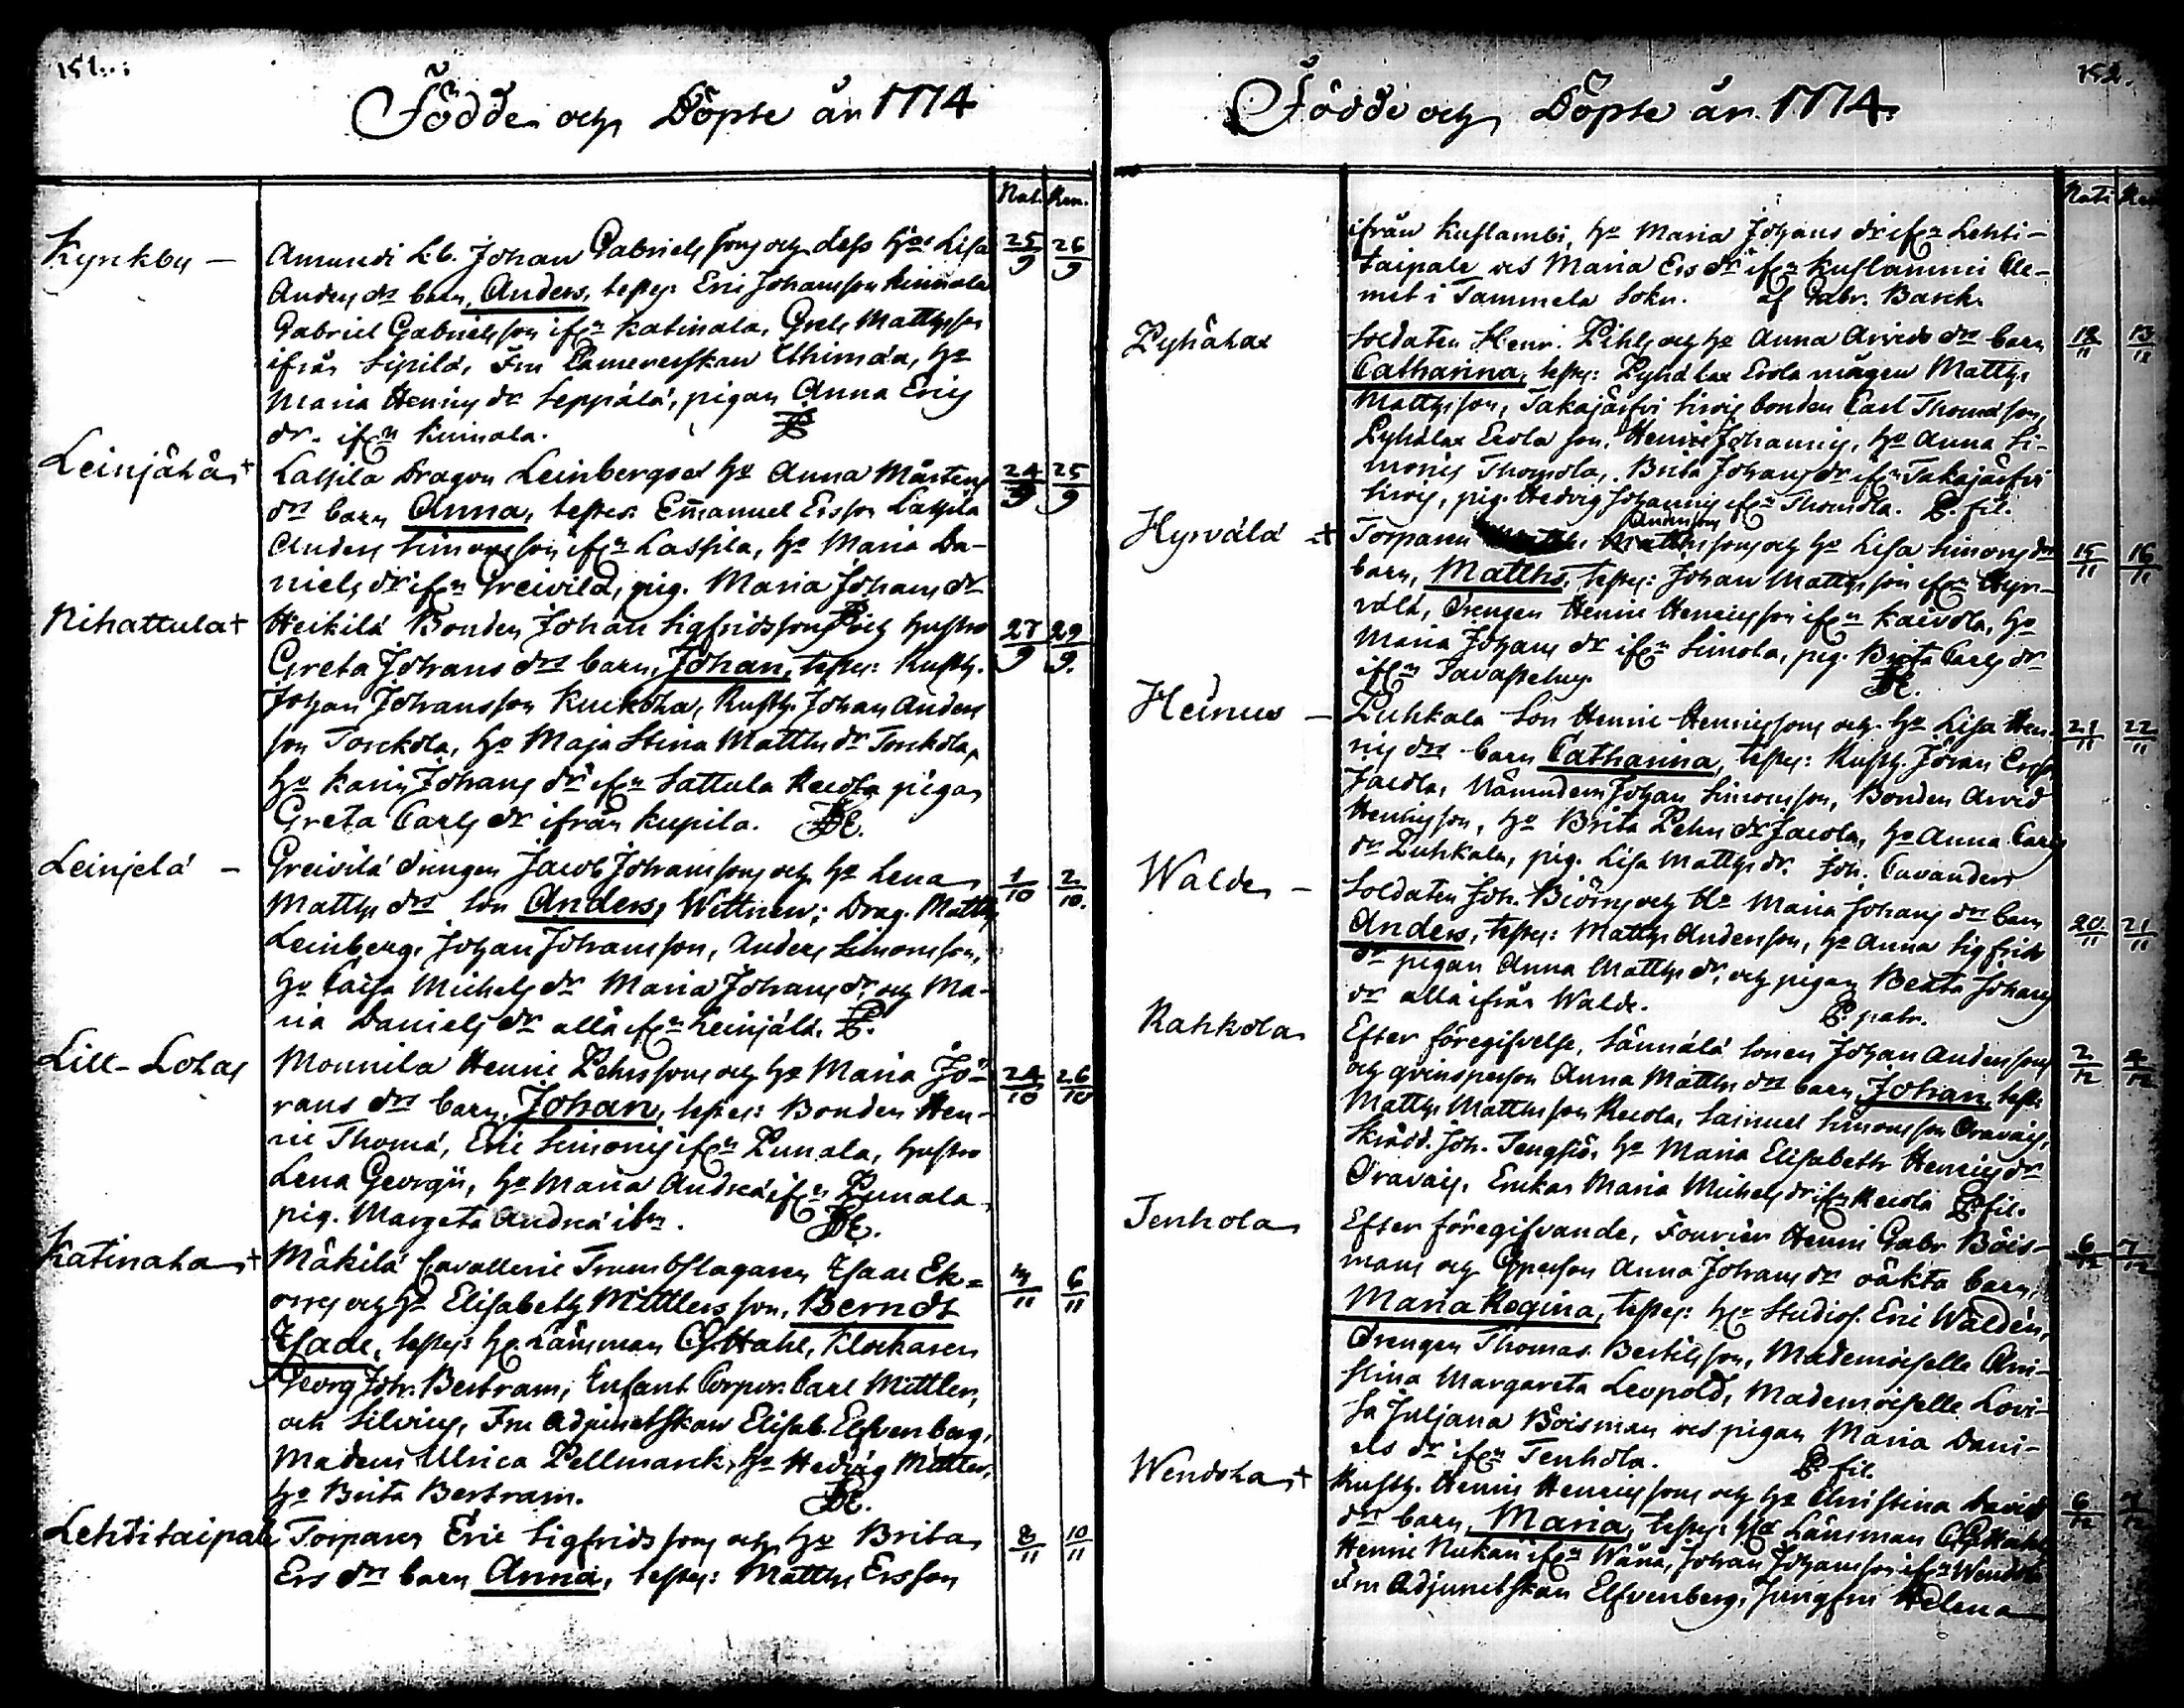 151.
Födde och Döpte år 1774
Nat. Ren.
Kyrkby – Amundi L.b. Johan Gabrielsson och dess H:s Lisa 25/9 26/9
Anders dr barn, Anders, testes: Eric Johansson Kuinala
Gabriel Gabrielsson ifrn Katinala, Matthsson
ifrån Sipilä, Fru Uhimäa, H:o
Maria Henrics dr Seppälä, pigan Anna Erics
dr. ifrn Kuinala.
Leinjälä + Lassila Dragon Leinbergs H:o Anna Mårtens 24/9 25/9
drs barn Anna, testes: Emanuel Ersson Lassila
Anders Simonsson ifrn Lassila, H:o Maria Da-
niels dr ifrn Greivilä, pig. Maria Johans dr
Nihattula + Heikilä Bonden Johan Sigfridssons och hustro 27/9 29/9.
Greta Johans drs barn, Johan, testes: Rusth.
Johan Johansson Kuckola, Rusth. Johan Anders
son Torckola, H:o Maja Stina Matths dr Torckola,
H:o Karin Johans dr ifrn Sattula pigan
Greta Carls dr ifrån Kupila.
Leinjelä – Greivilä drengen Jacob Johanssons och H:o Lena 1/10 2/10.
Matths drs son Anders, Wittnen; Drag. Matths
Leinberg, Johan Johansson, Anders Simonsson,
H:o Caisa Michels dr Maria Johans dr, och Ma-
ria Daniels dr alla ifrn Leinjälä.
Lill-Lohas Monnila Henric Pehrssons och H:o Maria Jö- 24/10 26/10
rans drs barn, Johan, testes: Bonden Hen-
ric Thomæ, Eric Simonis ifrn Punala, hustro
Lena Georgii, H:o Maria Andreæ ifrn Punala
pig. Margeta Andreæ ibm.
Katinala + Mäkilä Cavallerie Trumbslagaren Isaac Ek= 6/11
och H:o Elisabeth Mittlers son, Berndt
Isaac, testes: Hr Länsman C.G. Hahl, Klockaren
Georg Joh. Bertram, Enfant Corpor. Carl Mittler,
och Silvius, Fru Adjunctskan Elisab. Elfvenberg,
Madem Ulrica Pellmarck, H:o Hedvig Mittler,
H:o Brita Bertram.
Lehtitaipale Torparen Eric Sigfridssons och H:o Brita 8/11 10/11
Ers drs barn Anna, testes: Matths Ersson
152.
Födde och Döpte år. 1774.
Nati Ren
ifrån Kuslambi, H:o Maria Johans dr ifrn Lehti-
taipale och Maria Ers dr ifrn Kuslammi
i Tammela Sokn. af Gabr. Basch.
Pyhälax Soldaten Henr. Pihls och H:o Anna Arvids drs barn 12/11 13/11
Catharina, testes: Pyhälax Erola mågen Matths
Matthsson, Takajärfvi bonden Carl Thomasson,
Pyhälax Erola son, Henric Johannis, H:o Anna Si-
monis Thomola, Brita Johans dr ifrn Takajärfvi
pig. Hedvig Johannis ifrn Thomola. P. fil.
Hyrvälä + Torparen Anderssons och H:o Lisa Simons drs 15/11 16/11
barn, Matths, testes: Johan Matthsson ifrn Hyr-
välä, Drengen Henric Henricsson ifrn Kaivola, H:o
Maria Johans dr ifrn Simola, pig. Brita Carls dr
ifrn Tavastehus.
Heinus – Puhkala Son Henric Henricssons och H:o Lisa Hen- 21/11 22/11
rics drs barn Catharina, testes: Rusth. Jöran Ersson
Jacola, Nämndem Johan Simonsson, Bonden Arvid
Henricsson, H:o Brita Pehrs dr Jacola, H:o Anna Carls
dr Puhkala, pig. Lisa Matths dr. Joh. Cavander
Walde – Soldaten Joh. Biörns och H:o Maria Johans drs barn 20/11 21/11
Anders, testes: Matths Andersson, H:o Anna Sigfrids
dr pigan Anna Matths dr, och pigan Beata Johans
dr alla ifrån Walde. P. patr.
Rahkola Efter föregifvelse, Sännälä sonen Johan Anderssons 2/12 4/12
och qvinsperson Anna Matths drs barn Johan, test:
Matths Matthsson Recola, Samuel Simonsson Oravais,
Skrädd. Joh. H:o Maria Elisabeth Henrics dr
Oravais, Enkan Maria Michels dr ifrn Recola P. fil.
Tenhola Efter föregifvande, Fourier Henric Gabr. Böis- 6/12 7/12
mans och Qperson Anna Johans dr oäkta barn,
Maria Regina, testes: Hr Studios. Eric Waldén,
Drengen Thomas Bertilsson, Mademoiselle Chri-
stina Margareta Leopold, Mademoiselle Lovi-
sa Juljana Böisman och pigan Maria Dani-
els dr ifrn Tenhola. P. fil.
Wendola + Rusth. Henric Henricssons och H:o Christina Davids 6/12 7/12
drs barn, Maria, testes: Hr Länsman C.G. Hahl
Henric Nukari ifrn Wånå, Johan Johansson ifrn Wendola
Fru Adjunctskan Elfvenberg, Jungfru Helena